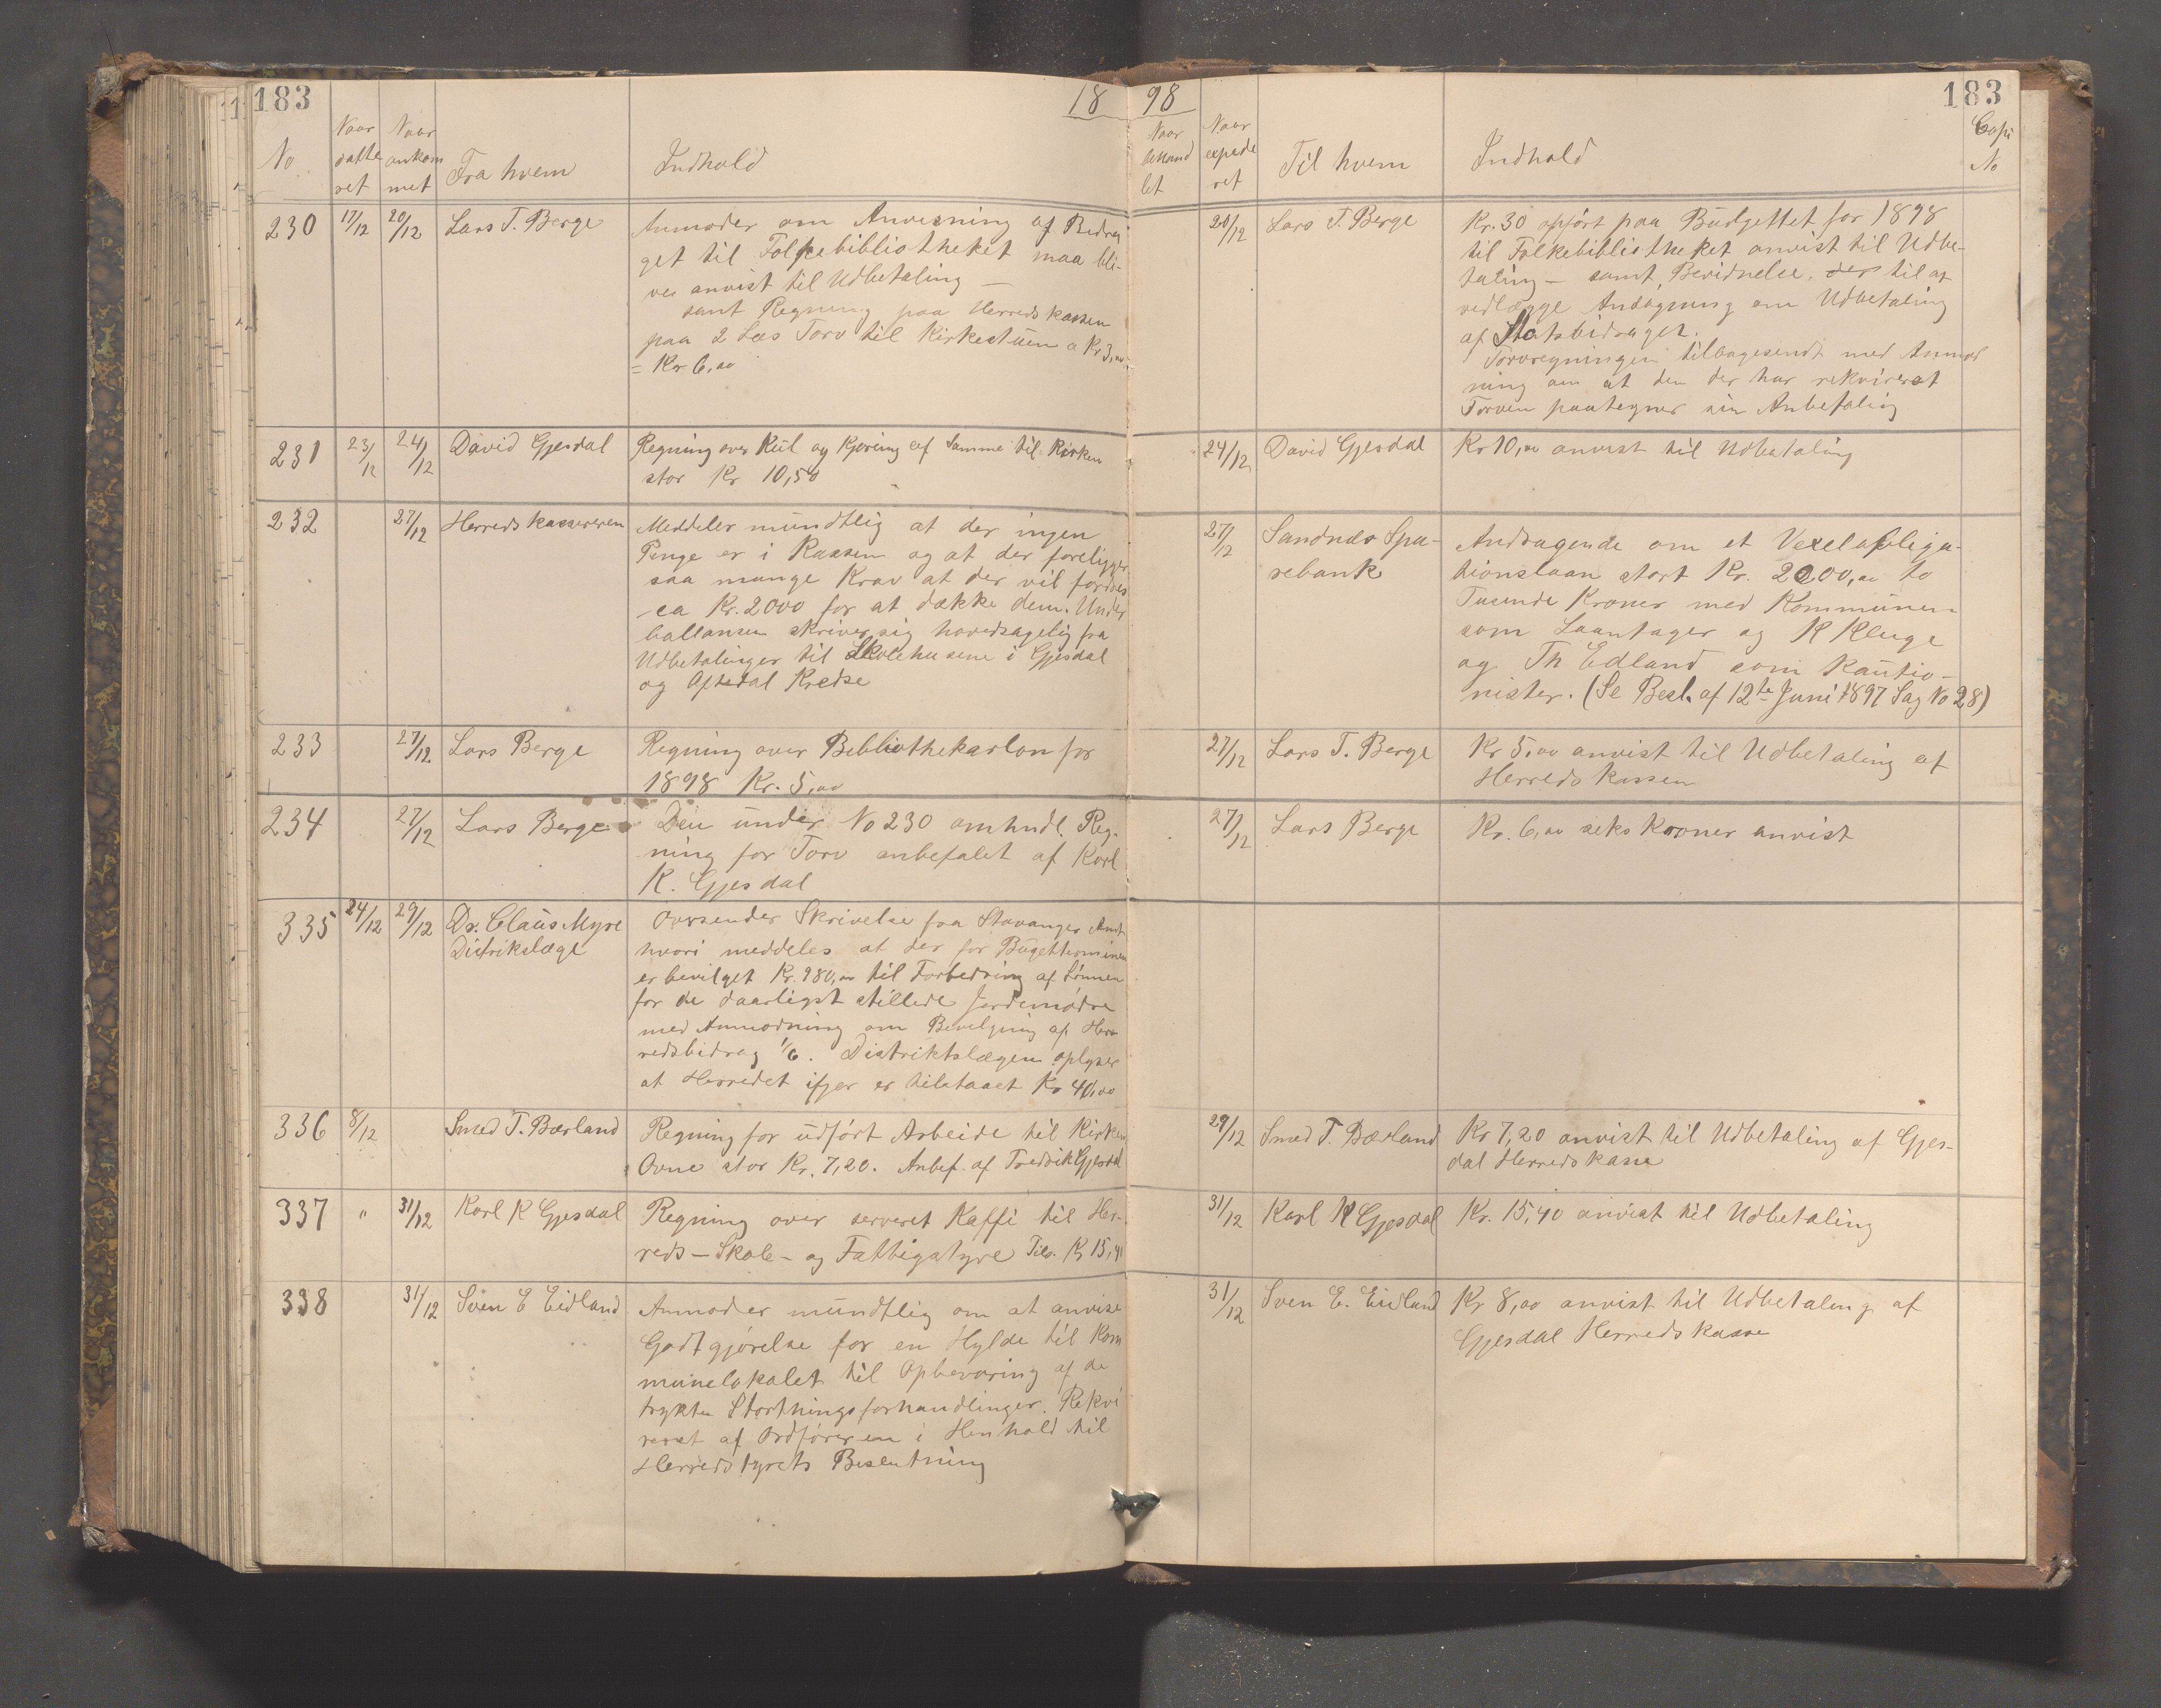 183
18
98
183
No
Naar datte ret
Naar ankom met
Fra hvem
Indhold
Naar behand let
Naar expede ret
Til hvem
Indhold
Copi No
230 17/12 20/12 Lars T. Berge
Anmoder om Anvisning af Bidra
get til Folkebibliotheket maa bli-
ve anvist til Udbetaling —
samt Regning paa Herredskassen
paa 2 Læs Torv til Kirkestuen a Kr 3,00
= Kr 6,00
20/12 Lars T. Berge
Kr. 30 opført paa Budgettet for 1898
til Folkebibliotheket anvist til Udbe-
taling — samt Bevidnelse til at
vedlægge Andragning om Udbetaling
af Statsbidraget.
Torvregningen tilbagesendt med Anmod
ning om at den der har rekvireret
Torven paategner sin Anbefaling
231 23/12 24/12 David Gjesdal
Regning over Kul og Kjøring af Samme til Kirken
stor Kr 10,50
24/12 David Gjesdal
Kr 10,00 anvist til Udbetaling
232 27/12 Herredskassereren
Meddeler mundtlig at der ingen
Penge er i Kassen og at der foreligger
saa mange Krav at der vil fordres
ca Kr. 2000 for at dække dem. Under
ballansen skriver sig hovedsagelig fra
Udbetalinger til Skolehusene i Gjesdal
og Oftedal Kredse
27/12 Sandnes Spa-
rebank
Andragende om et Vexelobliga-
tionslaan stort Kr. 2000,00 to
Tusende Kroner med Kommunen
som Laantager og K Kluge
og Th Edland som Kautio-
nister. (Se Besl. af 12te Juni 1897 Sag No 28)
233 27/12. Lars Berge
Regning over Bebliothekarløn for
1898 Kr. 5,00
27/12 Lars T. Berge
Kr 5,00 anvist til Udbetaling af
Herredskassen
234 27/12 Lars Berge
Den under No 230 omhndl. Reg-
ning for Torv anbefalet af Karl
K. Gjesdal
27/12 Lars Berge
Kr. 6,00 seks Kroner anvist
335 24/12 29/12 Dr. Claus Myre
Distrikslæge
Oversender Skrivelse fra Stavanger Amt
hvori meddeles at der for Bugetterminen
er bevilget Kr. 980,00 til Forbedring af Lønnen
for de daarligst stillede Jordemødre
med Anmodning om Bevilgning af Her-
redsbidrag 1/6. Distriktslægen oplyser
at Herredet ifjor er tilstaaet Kr 40,00
336 8/12 Smed T. Bærland
Regning for udført Arbeide til Kirken
Ovne stor Kr. 7,20. Anbef. af Fredrik Gjesdal
29/12 Smed T. Bærland
Kr 7,20 anvist til Udbetaling af Gjes-
dal Herredskasse
337 " 31/12 Karl K Gjesdal
Regning over serveret Kaffi til Her-
reds- Skole- og Fattigstyre Tils. Kr 15,40
31/12 Karl K Gjesdal
Kr. 15,40 anvist til Udbetaling
338 31/12 Sven E Eidland
Anmoder mundtlig om at anvise
Godtgjørelse for en Hylde til Kom
munelokalet til Opbevaring af de
trykte Storthingsforhandlinger. Rekvi
reret af Ordføreren i Henhold til
Herredstyrets Beslutning
31/12 Sven E. Eidland
Kr 8,00 anvist til Udbetaling af
Gjesdal Herredskasse